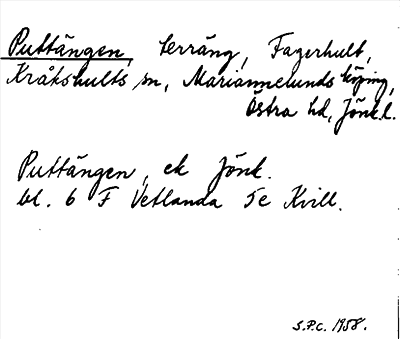 Puttängen, terräng, Fagerhult,
Kråkshults sn, Mariannelunds köping,
Östra hd, Jönk.l.
Puttängen, ek Jönk.
bl. 6 F Vetlanda 5e Kvill.
S.P.C. 1958.